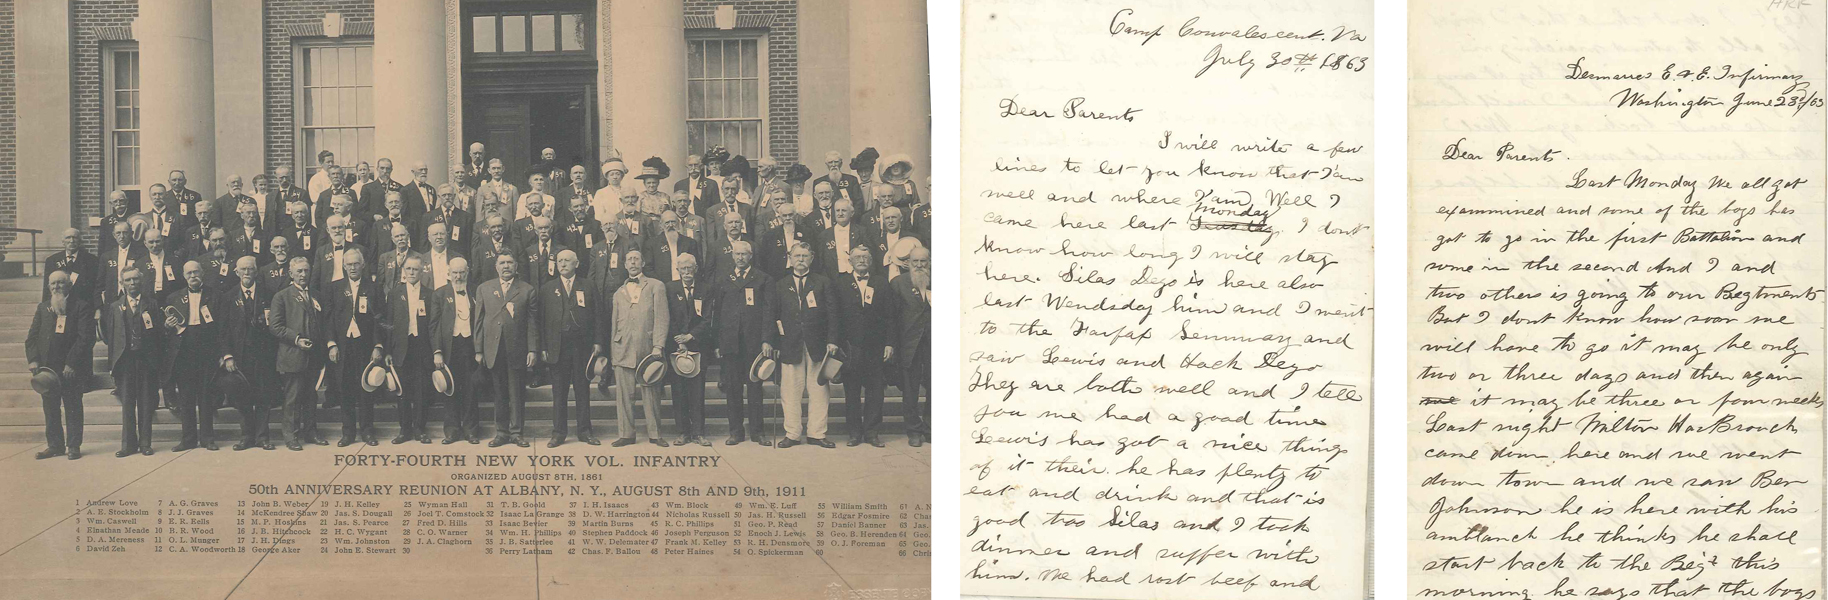 FORTY-FOURTH NEW YORK VOL. INFANTRY
ORGANIZED AUGUST 8TH, 1861
50th ANNIVERSARY REUNION AT ALBANY, N. Y., AUGUST 8th AND 9th, 1911
1 Andrew Love
2 A. E. Stockholm
3 Wm. Caswell
4 Elnathan Meade
5 D. A. Mereness
6 David Zeh
7 A. G. Graves
8 J. J. Graves
9 E. R. Kells
10 B. R. Wood
11 O. L. Munger
12 C. A. Woodworth
13 John B. Weber
14 McKendree Shaw
15 M. P. Hoskins
16 J. E. Hitchcock
17 J. H. Dings
18 George Aker
19 J. H. Kelley
20 Jas. S. Dougal
21 Jas. S. Pearce
22 H. C. Wygant
23 Wm. Johnston
24 John E. Stewart
25 Wyman Hall
26 Joel T. Comstock
27 Fred D. Hills
28 C. O. Warner
29 J. A. Claghorn
30
31 T. B. Goold
32 Isaac La Grange
33 Isaac Bevier
34 Wm. H. Phillips
35 J. B. Satterlee
36 Perry Latham
37 I. H. Isaacs
38 D. W. Harrington
39 Martin Burns
40 Stephen Paddock
41 W. W. Delemater
42 Chas. F. Ballou
43 Wm. Block
44 Nicholas Russell
45 R. C. Phillips
46 Joseph Ferguson
47 Frank M. Kelley
48 Peter Haines
49 Wm. E. Luff
50 Jas. H. Russell
51 Geo. P. Read
52 Enoch J. Lewis
53 R. H. Densmore
54 O. Spickerman
55 William Smith
56 Edgar Fosmire
57 Daniel Banner
58 Geo. B. Herenden
59 O. J. Foreman
60
61 A. N
62 Chas
63 Jas.
64 Geo.
65 Geo.
66 Chri
Camp Convalescent. Va
July 30th 1863
Dear Parents
I will write a few
lines to let you know that I am
well and where I am Well I
came here last Monday I dont
know how long I will stay
here. Silas Dego is here also
last Wendsday him and I went
to the Fairfax Semmary and
saw Lewis and Hack Dego
They are both well and I tell
you we had a good time
Leewis has got a nice thing
of it their. he has plenty to
eat and drink and that is
good too Silas and I took
dinner and suffer with
him. We had rost beef and
Desmarres E. & E. Infirmary
Washington June 23d/63
Dear Parents.
Last Monday We all got
exammined and some of the boys has
got to go in the first Battalion and
some in the second And I and
two others is going to our Regtments
But I dont know how soon we
will have to go it may be only
two or three days and then again
it may be three or four weeks
Last night Milton HasBrouck
came down here and we went
down town and we saw Ben
Johnson he is here with his
amblanch he thinks he shall
start back to the Regt this
morning he says that the boys